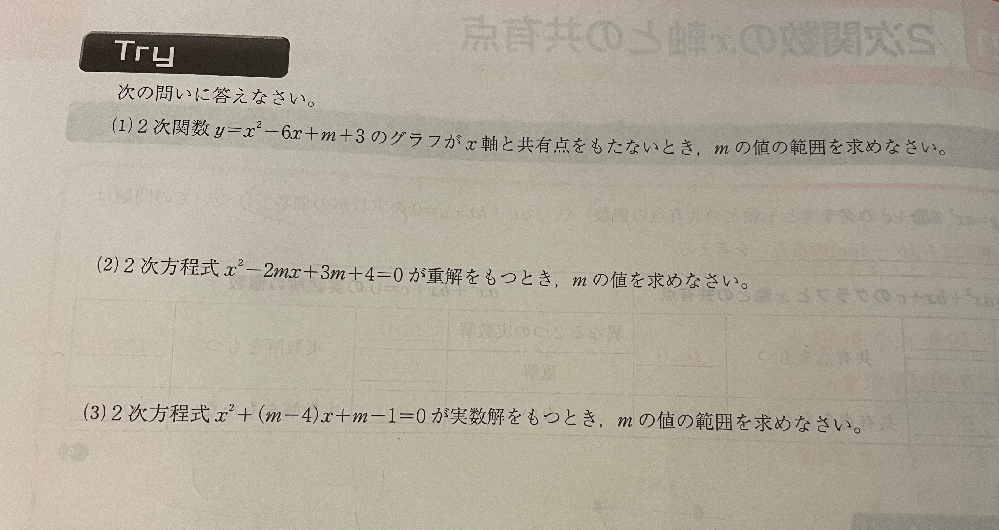 2次関数のx軸との共有点
Try
次の問いに答えなさい。
(1) 2次関数 y=x²−6x+m+3 のグラフが x 軸と共有点をもたないとき, m の値の範囲を求めなさい。
(2) 2次方程式 x²−2mx+3m+4=0 が重解をもつとき, m の値を求めなさい。
(3) 2次方程式 x²+(m−4)x+m−1=0 が実数解をもつとき, m の値の範囲を求めなさい。